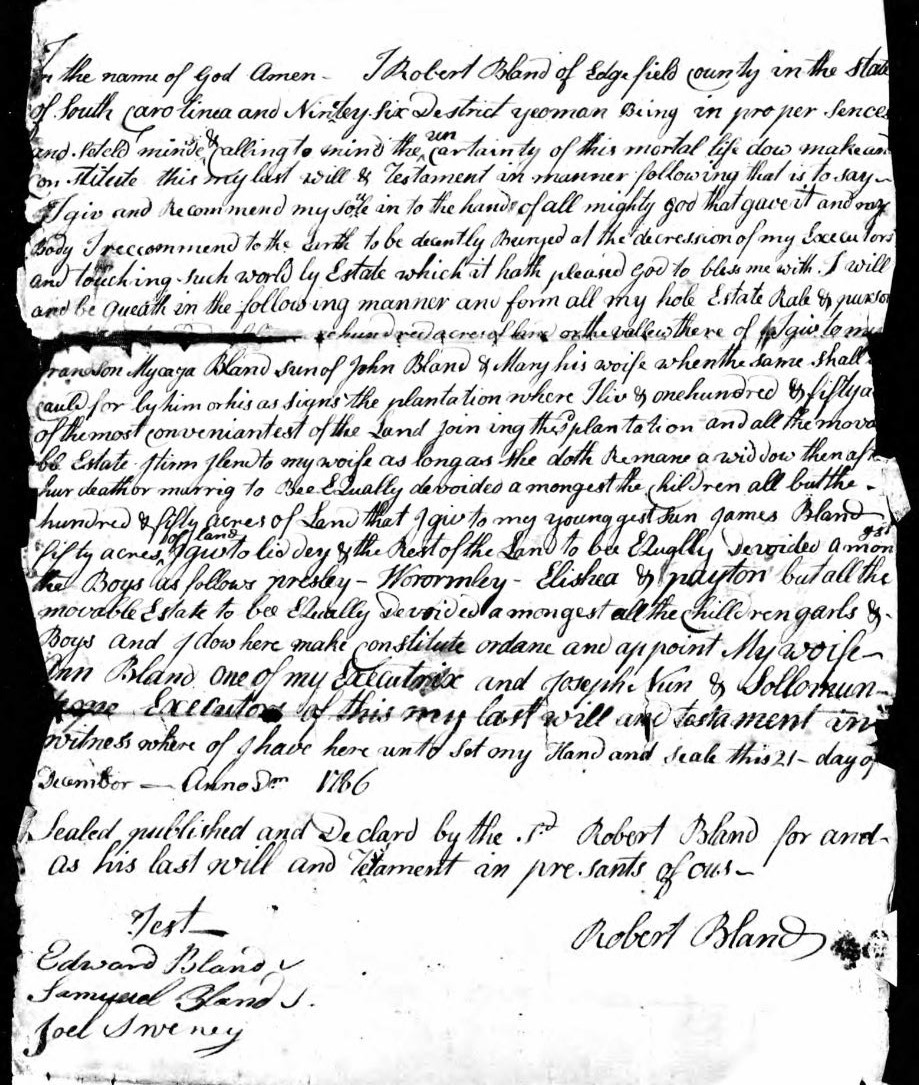 In the name of God Amen - I Robert Bland of Edgefield county in the State
of South Carolinea and Nintey Six Destrict yeoman Being in proper Sences
and Seteld minde & calling to mind the un certainty of this mortal life dow make and
Con stitute this my last will & Testament in manner following that is to say -
I giv and Recommend my Sole in to the hands of all mighty god that gave it and my
Body I reccommend to the Earth to be decently Beuryed at the decression of my Executors
and touching such world ly Estate which it hath pleased God to bless me with I will
and be queath in the following manner and form all my hole Estate Rale & purson
hundred acres of land or the vallew there of I giv to my
Grandson Mycaga Bland sun of John Bland & Mary his woife when the same shall
cauld for by him or his as signs the plantation where I liv & one hundred & fifty a
of the most conveniantest of the Land join ing the sd plantation and all the mova
ble Estate I lend to my woife as long as she doth Remane a widdow then aft
hur death or marrig to Bee EQually devoided amongest the Children all but the
hundred & fifty acres of Land that I giv to my younggest Sun James Bland
fifty acres of land I giv to & the Rest of the Land to bee EQually Devoided amongst
the Boys as follows presley - Worormley - Elishea & payton but all the
movable Estate to bee EQually Devoided amongest all the Chilldren garls &
Boys and I dow here make constitute ordane and appoint My woife -
Ann Bland one of my Executrix and Joseph Nun & Sollomun -
Executors of this my last will and testament in
witness where of I have here unto Set my Hand and Seale this 21 - day of
December - Anno Dm 1786
Sealed published and Declard by the sd Robert Bland for and -
as his last will and Testament in pre sants of ous -
Test -
Robert Bland
Edward Bland
Samuel Bland
Joel Sweney